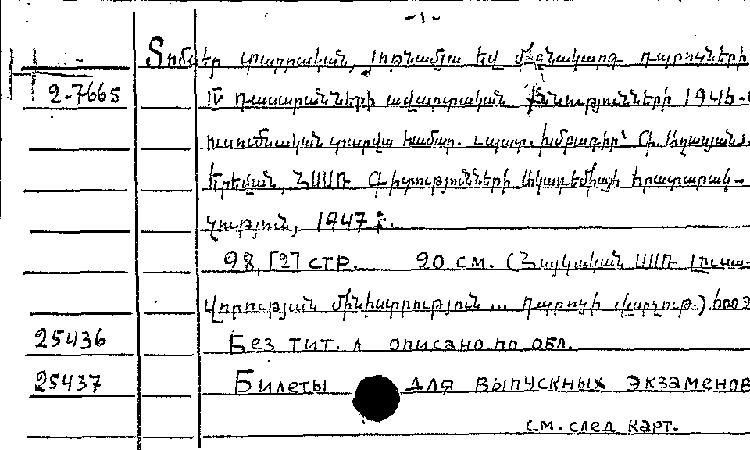 -1-
Տոմսեր տարրական, յոթնամյա եվ միջնակարգ դպրոցների
2-7665 IV դասարանների ավարտական քննությունների 1946-
ուսումնական տարվա համար. Պատ. խմբագիր՝
Երեվան, ՀՍՍՌ Գիտությունների Ակադեմիայի հրատարակ-
չություն, 1947 г.
98, [2] стр. 20 см. (Հայկական ՍՍՌ Լուսա-
վորության մինիստրություն... դպրոցի վարչութ.)
25436 Без тит. л описано по обл.
25437 Билеты для выпускных экзаменов
см. след карт.